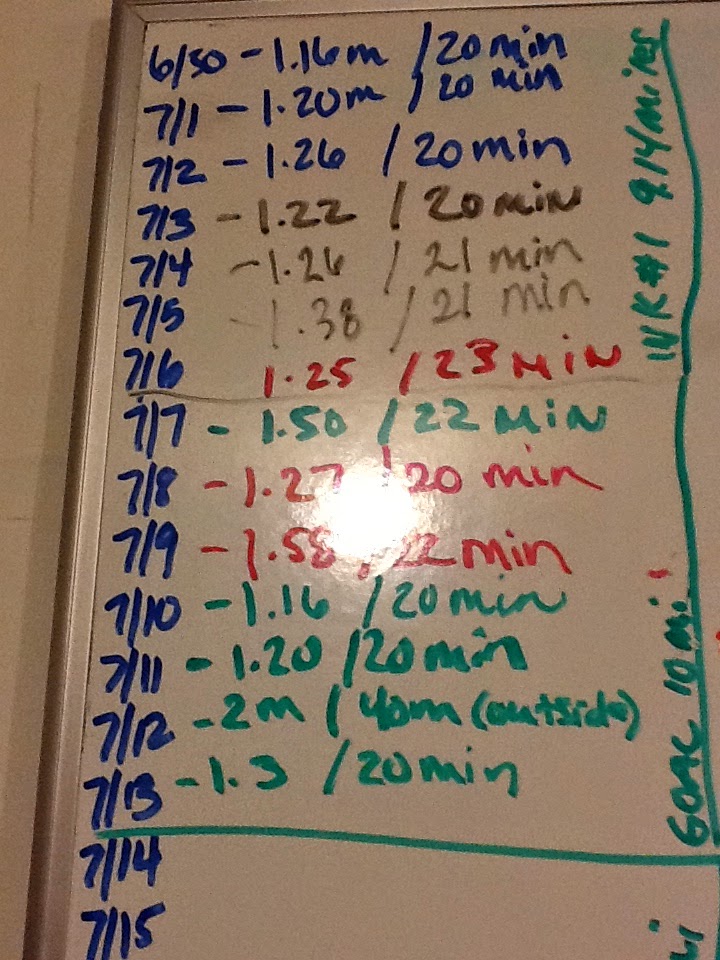 6/30 - 1.16m / 20 min
7/1 - 1.20m / 20 min
7/2 - 1.26 / 20 min
7/3 - 1.22 / 20 min
7/4 - 1.26 / 21 min
7/5 - 1.38 / 21 min
7/6 1.25 / 23 min
7/7 - 1.50 / 22 min
7/8 - 1.27 / 20 min
7/9 - 1.58 / 22 min
7/10 - 1.16 / 20 min
7/11 - 1.20 / 20 min
7/12 - 2m / 40m (outside)
7/13 - 1.3 / 20 min
7/14
7/15
WK #1 9.14 miles
GOAL 10 mi